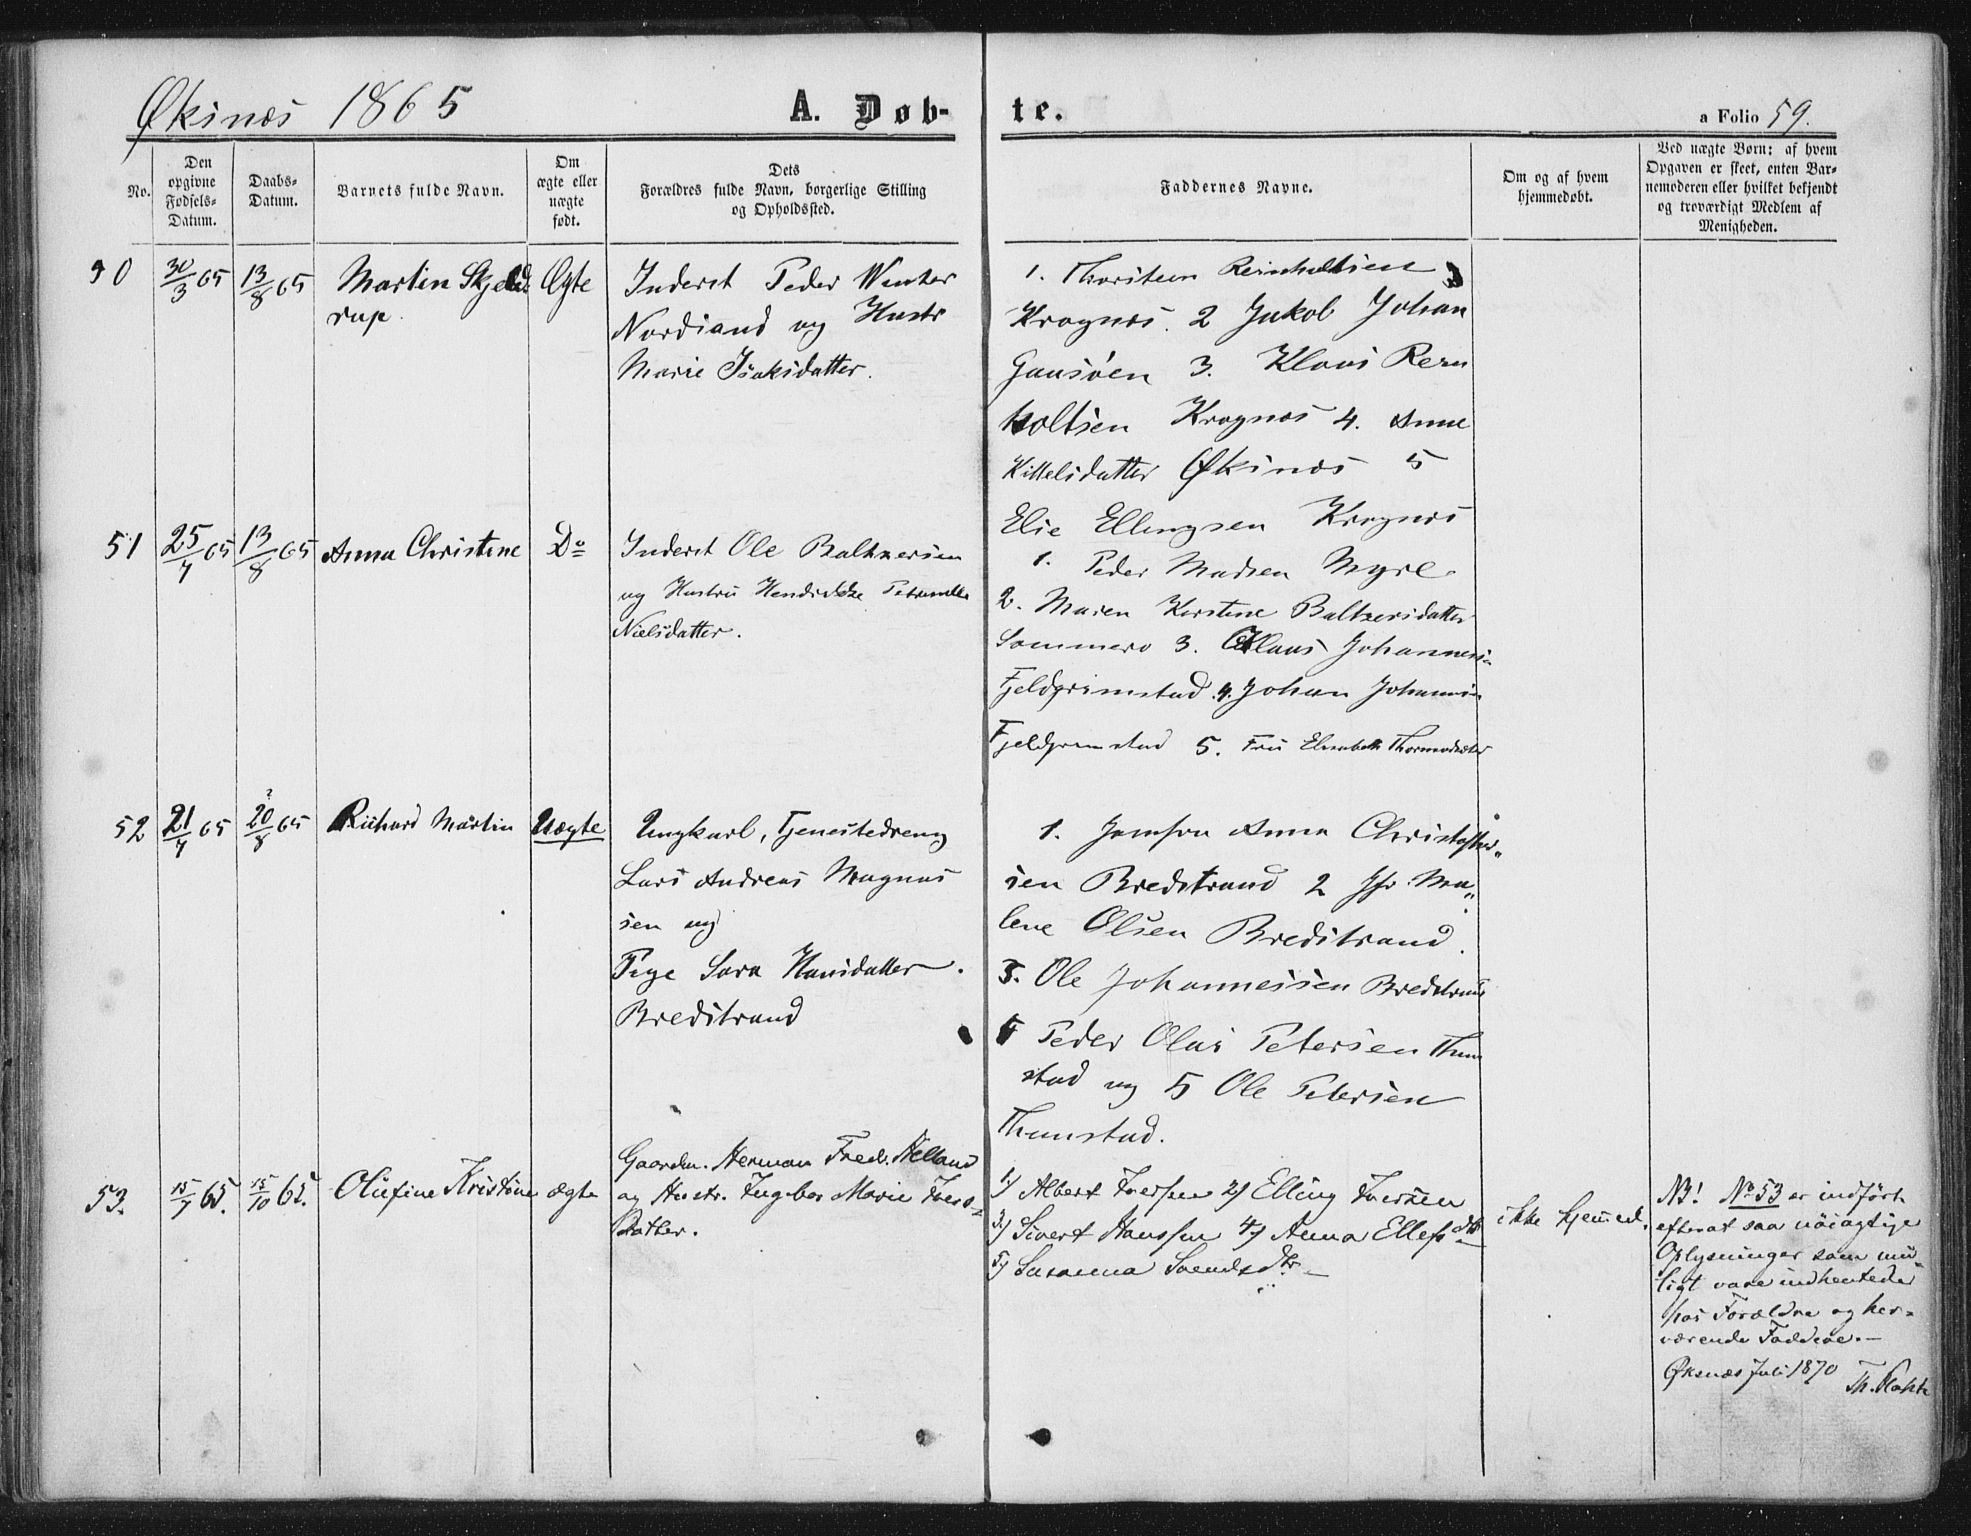 Øksnæs 1865 A. Døb-
te. a Folio 59.
No.
Den
opgivne
Fødsels-
Datum.
Daabs-
Datum.
Barnets fulde Navn.
Om
ægte eller
uægte
født.
Dets
Forældres fulde Navn, borgerlige Stilling
og Opholdssted.
Faddernes Navne.
Om og af hvem
hjemmedøbt.
Ved uægte Børn: af hvem
Opgaven er skeet, enten Bar-
nemoderen eller hvilket bekjendt
og troværdigt Medlem af
Menigheden.
50 30/3 65 13/8 65 Martin Skjeld-
rup.
Ægte
Inderst Peder Winther
Nordland og Hustr
Marie Isaksdatter.
1. Thorsteen Reinholtsen
Kragnæs. 2 Jakob Johan
Gaasøen 3. Klaus Rein
holtsen Kragnæs 4. Anne
Kittelsdatter Øksnæs 5
Elie Ellingsen Kragnæs
51 25/7 65 13/8 65 Anna Christine Do
Inderst Ole Baltzersen
og Hustru Hendrikke Petronelle
Nielsdatter.
1. Peder Madsen Myre
2. Maren Kirstine Baltzersdatter
Sommerø 3. Klaus Johannes-
Fjeldgrimstad 4. Johan Johannes
Fjeldgrimstad 5. Fru Elisabeth Thormodsæter
52 21/7 65 20/8 65 Richard Martin Uægte
Ungkarl, Tjenestedreng
Lars Andreas Magnus
sen og
Pige Sara Hansdatter.
Bredstrand
1. Jomfru Anna Christoffer„
sen Bredstrand 2 Jfr. Ma„
lene Olsen Bredstrand.
3. Ole Johannessen Bredstrand
4 Peder Olai Petersen Thun
stad og 5 Ole Petersen
Thunstad.
53. 15/7 65. 15/10 65. Olufine Kristine ægte
Gaardm. Herman Fredr. Helland
og Hustr. Ingebor Marie Ivers-
datter.
1) Albert Iversen 2) Elling Iversen
3) Sivert Hanssen 4) Anna Ellefsdtr
5) Susanna Svendsdtr. —
ikke hjemmed.
NB! No 53 er indført
efterat saa nöiagtige
Oplysninger som mu-
ligt vare indhentede
hos Forældre og her-
værende Faddere. —
Øksnæs Juli 1870